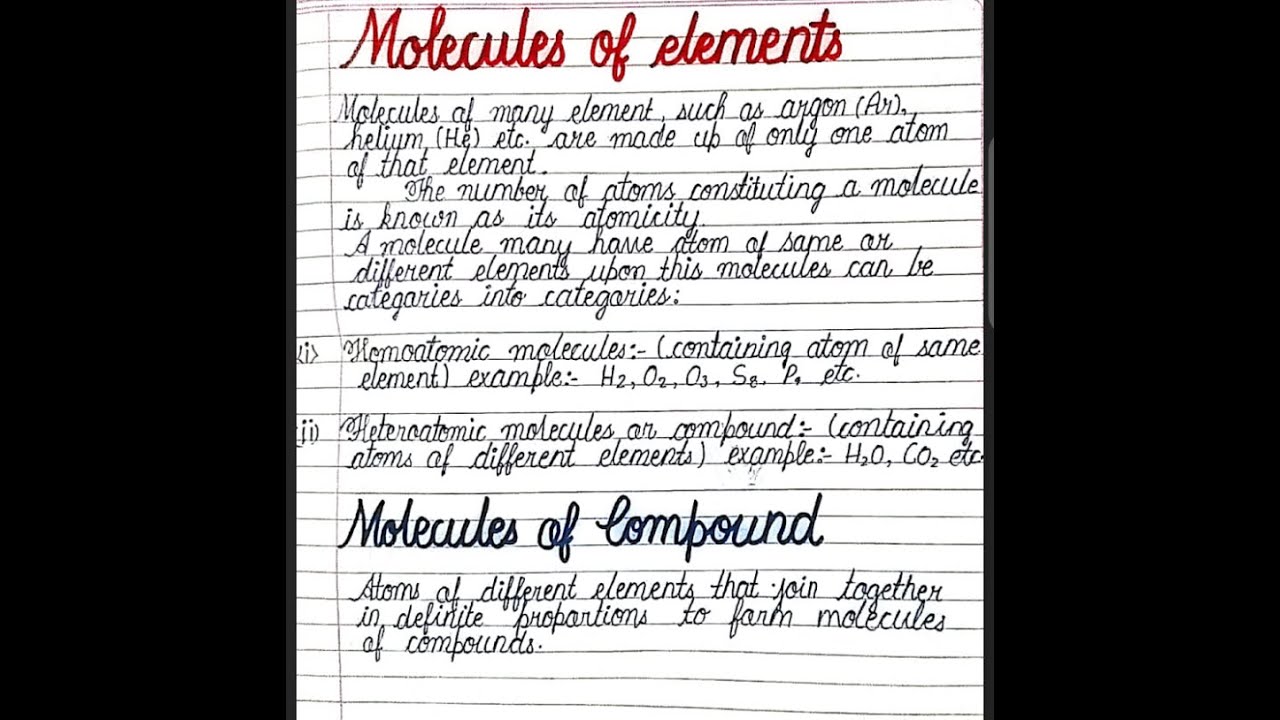 Molecules of elements
Molecules of many element, such as argon (Ar),
helium (He) etc. are made up of only one atom
of that element.
The number of atoms constituting a molecule
is known as its atomicity.
A molecule many have atom of same or
different elements upon this molecules can be
categaries into categaries:
(i) Homoatomic molecules:- (containing atom of same
element) example:- H₂, O₂, O₃, S₈, P₄ etc.
(ii) Heteroatomic molecules or compound:- (containing
atoms of different elements) example:- H₂O, CO₂ etc.
Molecules of Compound
Atoms of different elements that join together
in definite proportions to form molecules
of compounds.